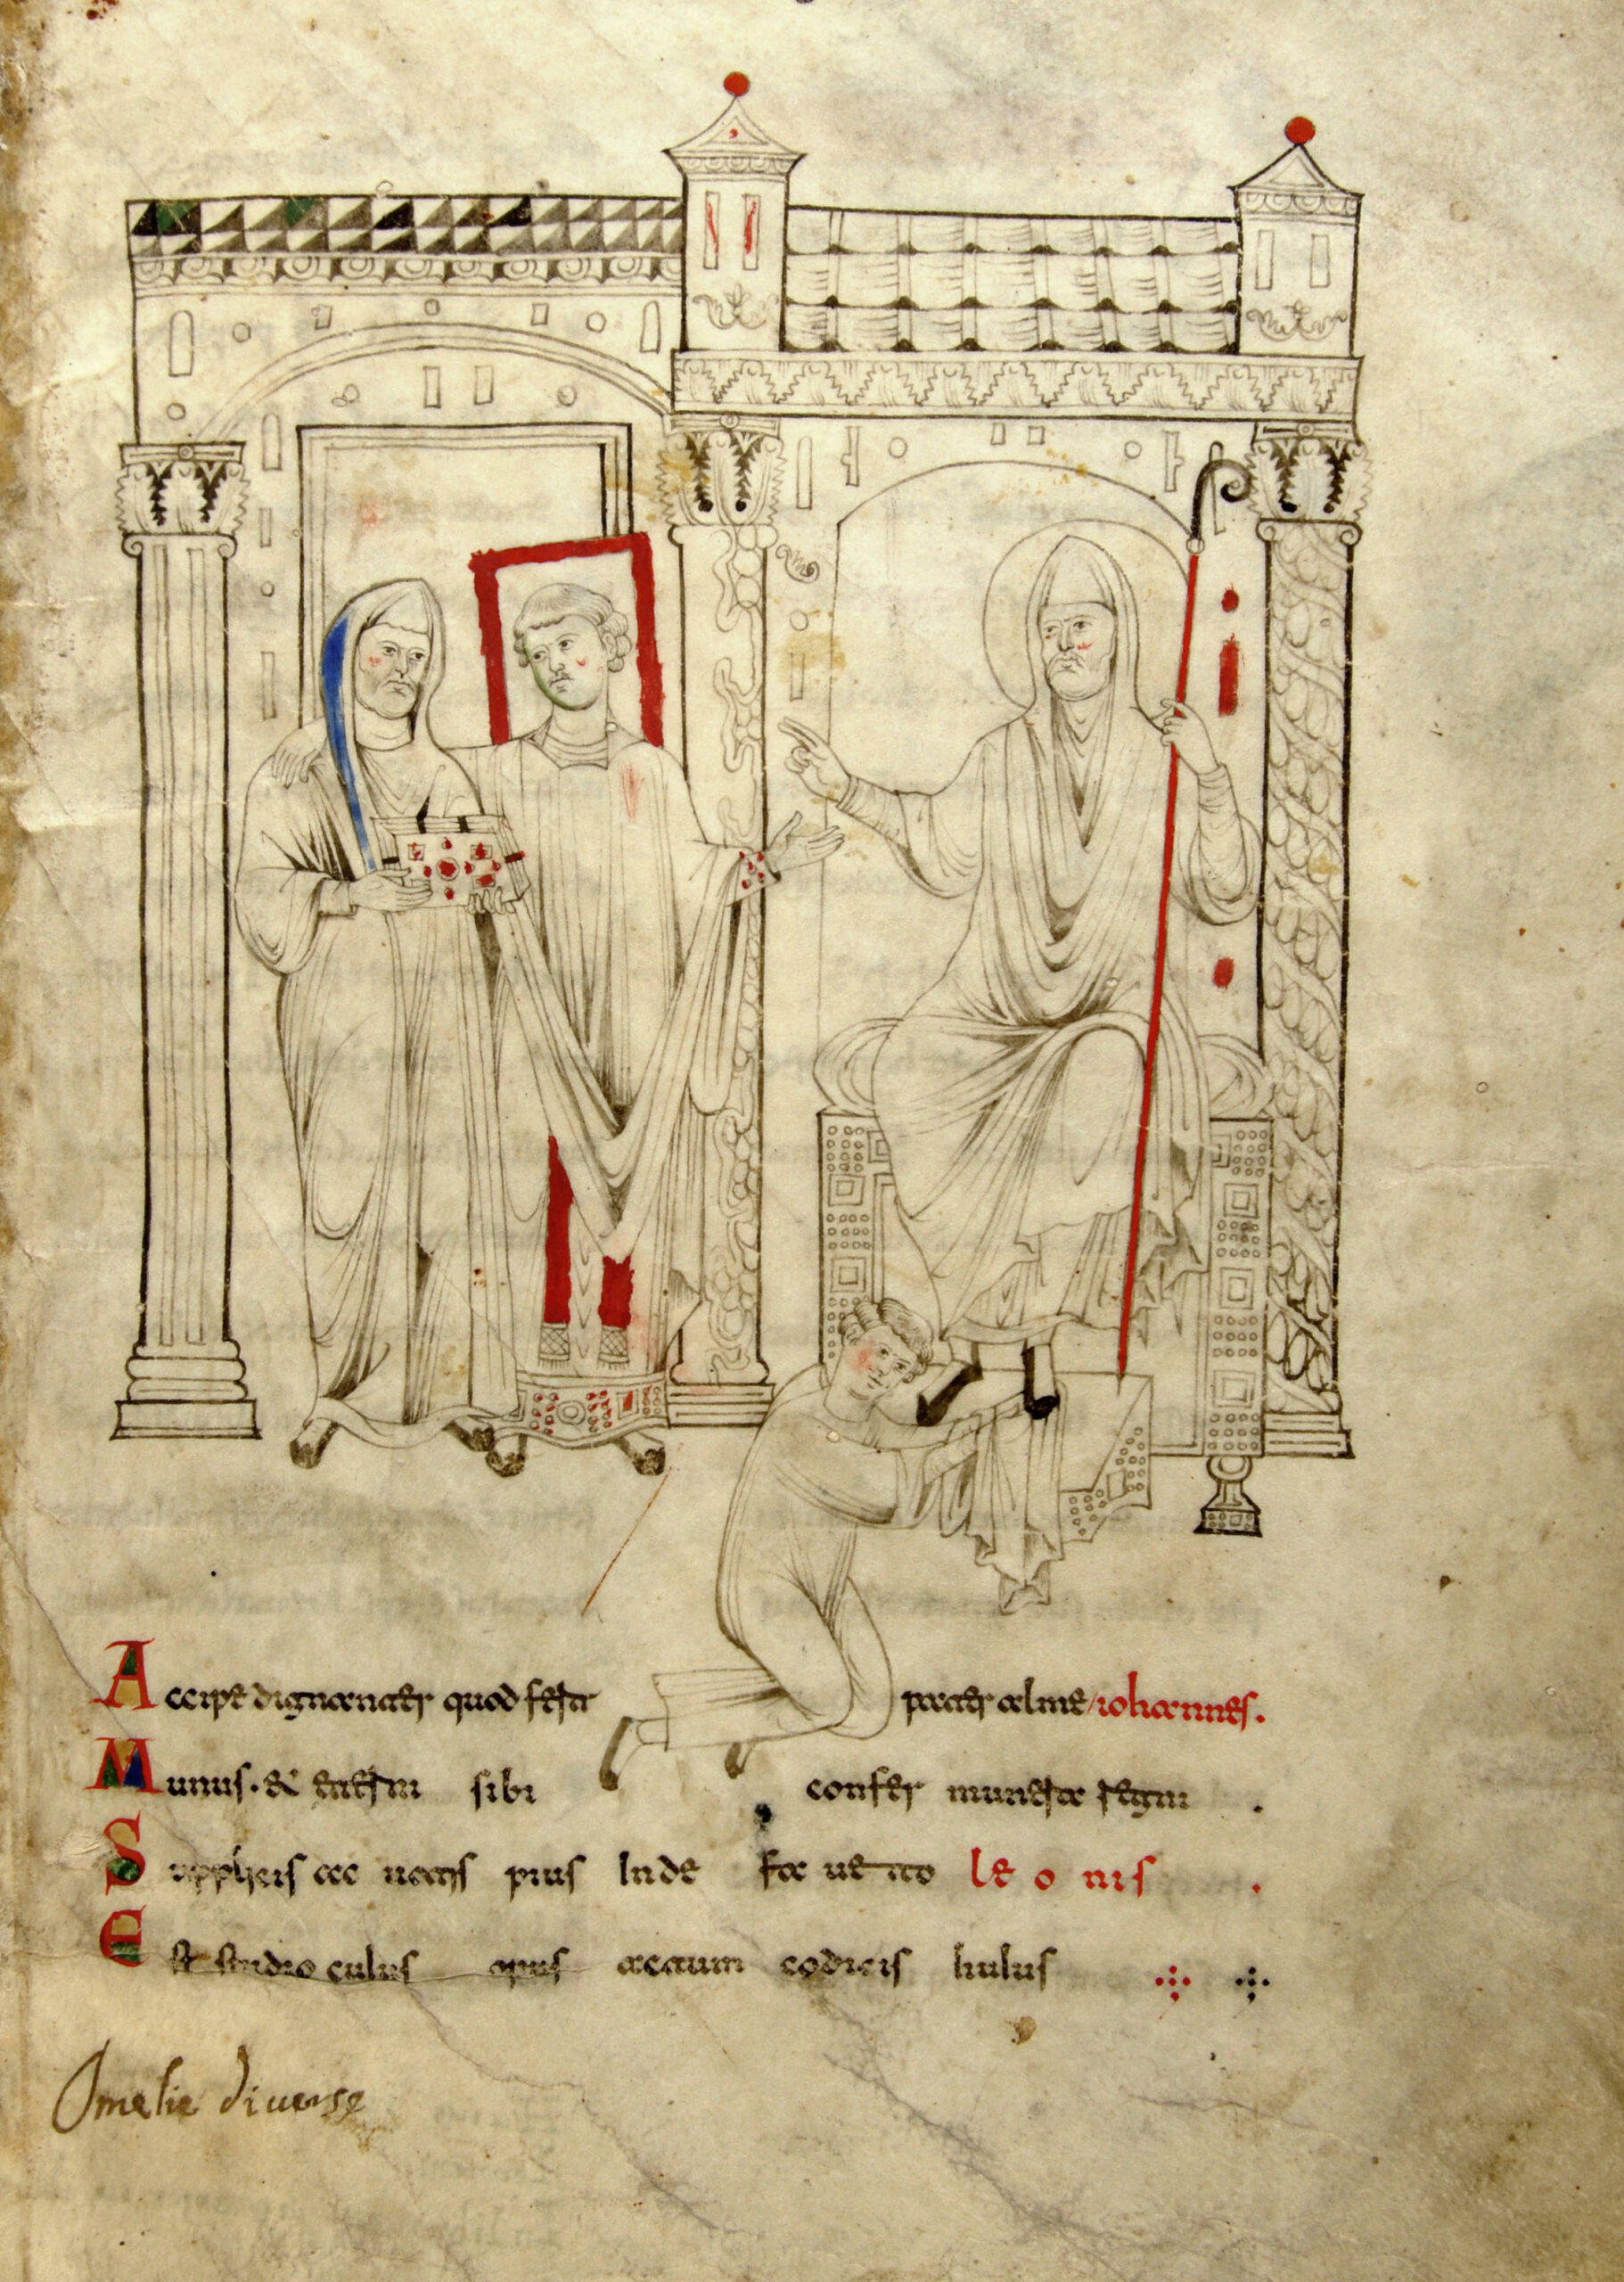 Accipe dignanter quod fert pater alme iohannes.
Munus. & eterni sibi confer munera regni .
Supplicis ac uotis pius inde fa ue to le o nis .
Est studio cuius opus actum codicis huius
Omelie diuerse